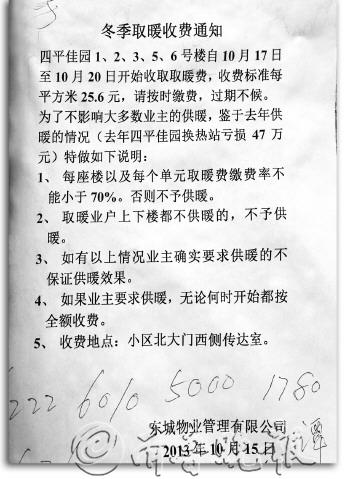 冬季取暖收费通知
四平佳园1、2、3、5、6号楼自10月17日
至10月20日开始收取取暖费，收费标准每
平方米25.6元，请按时缴费，过期不候。
为了不影响大多数业主的供暖，鉴于去年供
暖的情况（去年四平佳园换热站亏损 47 万
元）特做如下说明：
1、 每座楼以及每个单元取暖费缴费率不
能小于70%。否则不予供暖。
2、 取暖业户上下楼都不供暖的，不予供
暖。
3、 如有以上情况业主确实要求供暖的不
保证供暖效果。
4、 如果业主要求供暖，无论何时开始都按
全额收费。
5、 收费地点：小区北大门西侧传达室。
222 6010 5000 1780
东城物业管理有限公司
2013年10月15日
齐鲁晚报